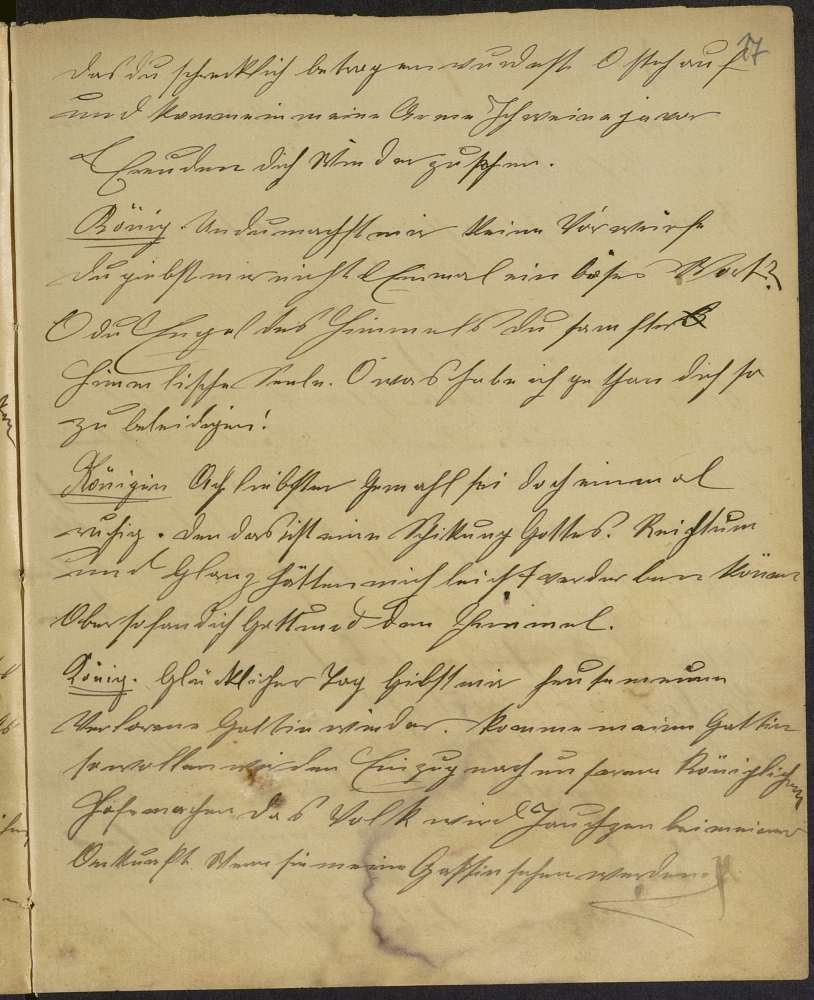 17
das du schrecklich betrogen wurdest. O steh auf
und komme in meine Arme Ich weine ja vor
Freuden dich Wieder zu sehen.
König Un du machst mir keine Vorwürfe
du giebst mir nicht Einmal ein böses Wort?
O du Engel des Himmels du sanfter
Himmlische Seele. O was habe ich gethan dich so
zu beleidigen!
Königin Ach liebster Gemahl sei doch einmal
ruhig. den das ist eine Schikung Gottes. Reichtum
und Glanz hätten mich leicht verderben könen
Aber so fand ich Gott und den Himmel.
König. Glücklicher Tag Gibst mir heute meine
Verlorene Gattin wieder. komme meine Gattin
so wollen wir den Einzug nach unserem Königlichen
Hofe machen das Volk wird Jauchzen bei meiner
Ankunft Wen sie meine Gattin sehen werden.